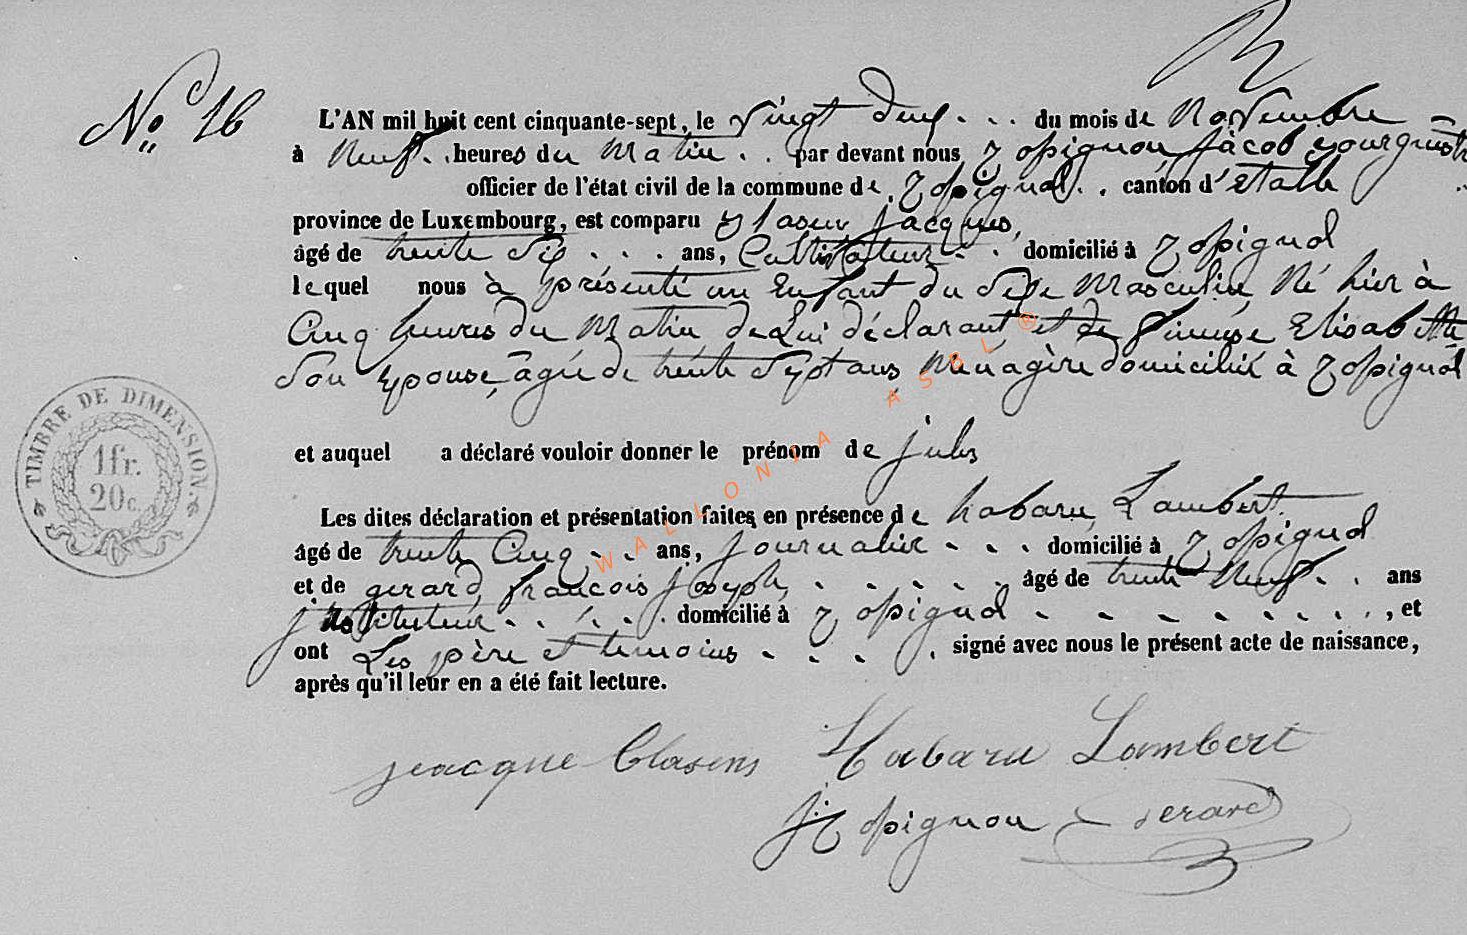 No 16
L'AN mil huit cent cinquante-sept, le vingt deux... du mois de Novembre
à neuf.. heures du Matin.. par devant nous Zopignon, jàcob Bourgmestre
officier de l'état civil de la commune de Opignul.. canton d'étalle
province de Luxembourg, est comparu Clasen, jacques,
âgé de trente Six... ans, Cultivateur.. domicilié à Opignul
lequel nous à présenté un Enfant du Sexe Masculin Né hier à
Cinq heures du Matin de Lui déclarant et de Elisabeth
Son Epouse, àgée de trente Sept ans Ménagère domiciliée à Opignul
et auquel a déclaré vouloir donner le prénom de jules
Les dites déclaration et présentation faites en présence de habaru, Lambert.
âgé de trente Cinq.. ans, journalier... domicilié à Opignul
et de gerard, francois joseph,..... âgé de trente Neuf.. ans
jnstituteur..... domicilié à Opignul........., et
ont Les père et temoins.... signé avec nous le présent acte de naissance,
après qu'il leur en a été fait lecture.
TIMBRE DE DIMENSION.
1fr.
20c.
WALLONIA ASBL ®
jeacque Clasens Habaru Lambert
j: Zopignon Gerard